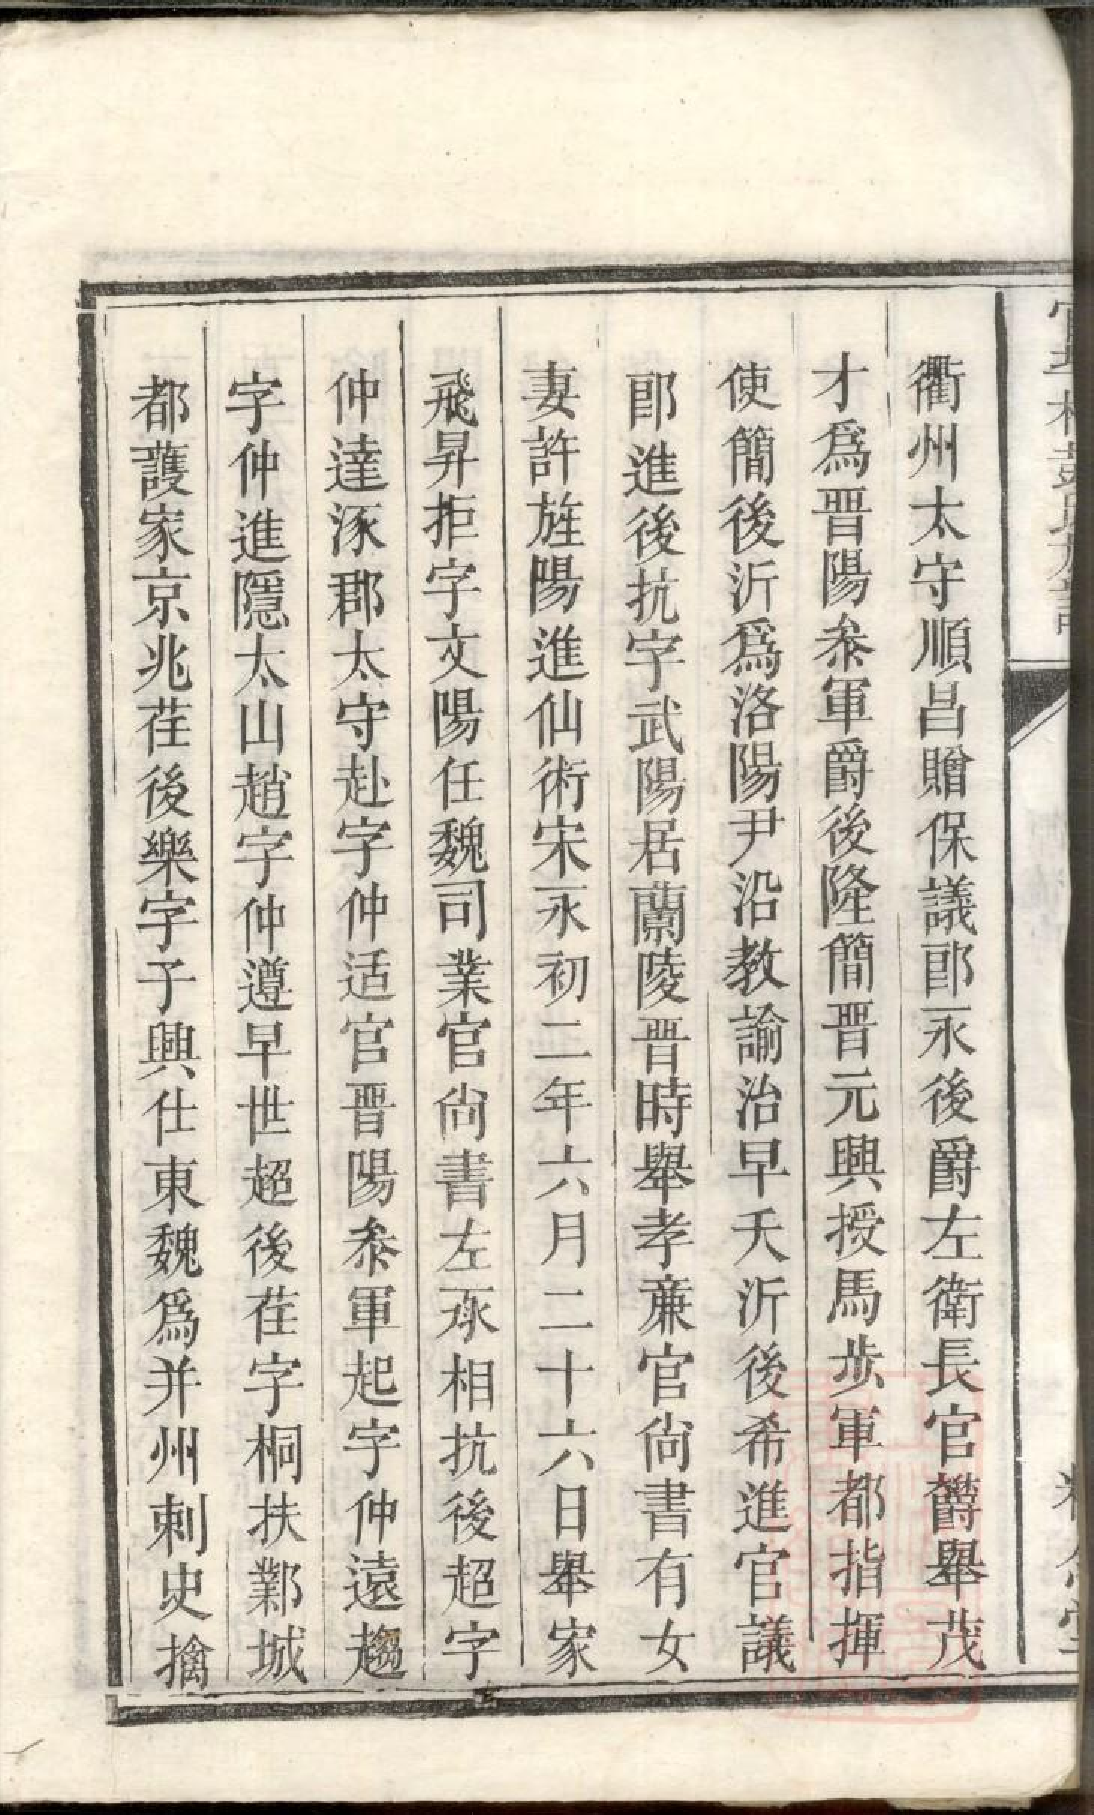 衢州太守順昌贈保議郎永後爵左衛長官欝舉茂
才爲晋陽叅軍爵後隆簡晋元興授馬歩軍都指揮
使簡後沂爲洛陽尹沿教諭治早夭沂後希進官議
郎進後抗字武陽居蘭陵晋時舉孝亷官尙書有女
妻許旌陽進仙術宋永初二年六月二十六日舉家
飛昇拒字文陽任魏司業官尙書左丞相抗後超字
仲達涿郡太守赴字仲适官晋陽叅軍起字仲遠趨
字仲進隱太山趙字仲遵早世超後荏字桐扶鄴城
都護家京兆荏後樂字子興仕東魏爲并州刺史擒